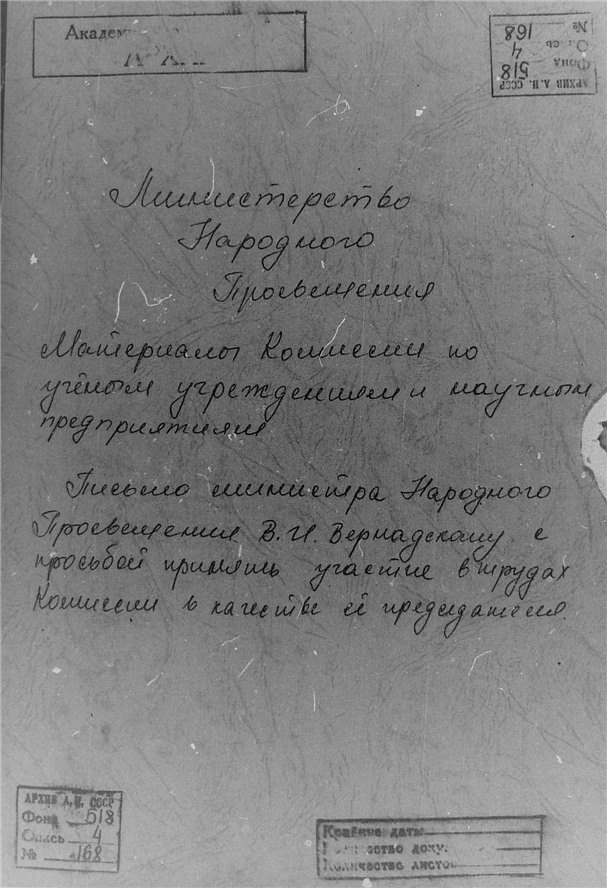 АРХИВ А.Н. СССР
Фонд 518
Опись 4
№ 168
Министерство
Народного
Просвещения
Материалы Комиссии по
учёным учреждениям и научным
предприятиям
Письмо министра Народного
Просвещения В.И. Вернадскому с
просьбой принять участие в трудах
Комиссии в качестве её председателя.
АРХИВ А.Н. СССР
Фонд 518
Опись 4
№ 168
Крайние даты
Количество листов